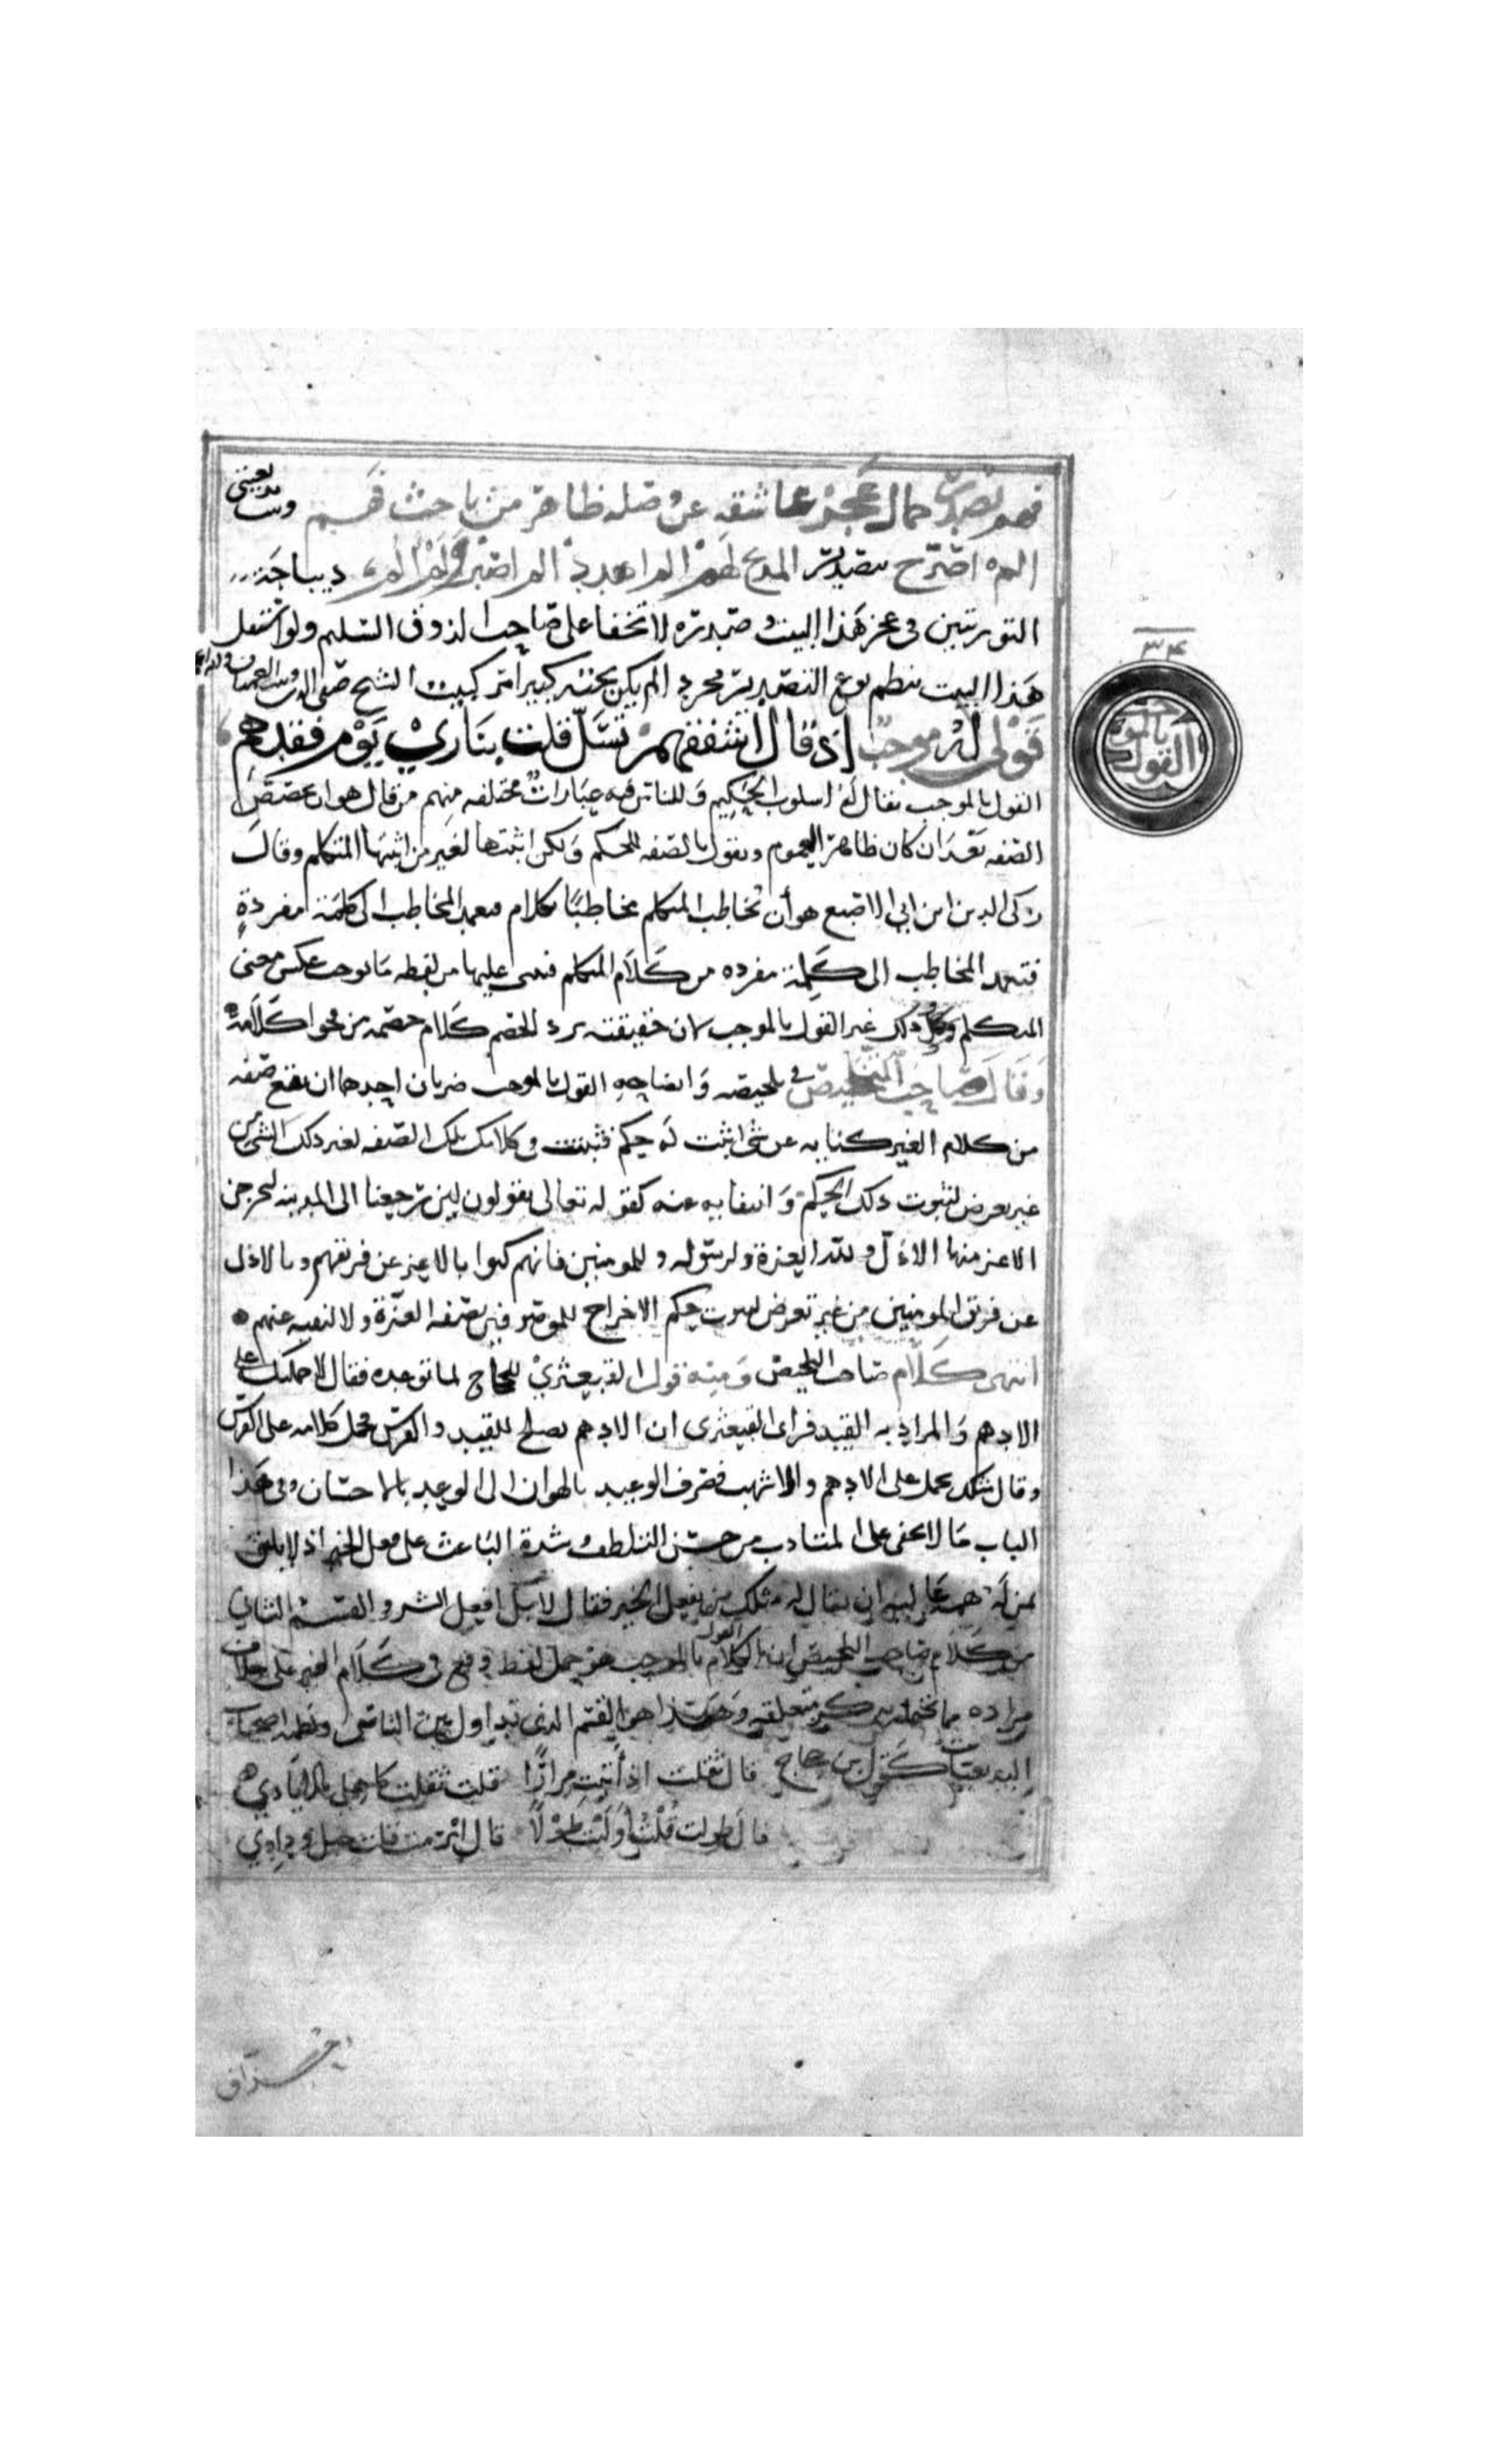 فهو بصدر جمال عجز عاشقه عن وصله ظاهر من باحث فهم وبيت بديعيتي
الم اصرح بتصدير المديح لهم الم اهدد الم اصبر الم الم ديباجة
التوريتين في عجز هذا البيت وصدره لا تخفا على صاحب الذوق السليم ولو استقل
هذا البيت بنظم نوع التصدير مجردا لم يكن تحته كبير امر كبيت الشيخ صفي الدين وبيت العميان والله اعلم
قولي له موجب اذ قال اشفقهم تسل قلت بناري يوم فقدهم
القول بالموجب يقال له اسلوب الحكيم وللناس فيه عبارات مختلفه منهم من قال هو ان يخصص
الصفه بعد ان كان ظاهرها العموم ويقول بالصفه للحكم ولكن اثبتها لغير من اثبتها المتكلم وقال
زكي الدين ابن ابي الاصبع هو أن يخاطب المتكلم مخاطبًا بكلام فيعمد المخاطب الى كلمة مفردةٍ
فيعمد المخاطب الى كلمة مفرده من كلام المتكلم فيبني عليها من لفظه ما يوجب عكس معنى
المتكلم وذلك عين القول بالموجب لان حقيقته رد الخصم كلام خصمه من فحوا كلامه
وقال صاحب التلخيص في تلخيصه وايضاحه القول بالموجب ضربان احدهما ان يقع صفه
من كلام الغير كنايه عن شي اثبت له حكم فتثبت في كلامك تلك الصفه لغير ذلك الشي من
غير تعرض لثبوت ذلك الحكم وانتفايه عنه كقوله تعالى يقولون لين رجعنا الى المدينه ليخرجن
الاعز منها الاذل ولله العزة ولرسوله وللمومنين فانهم كنوا بالاعز عن فريقهم وبالاذل
عن فريق المومنين من غير تعرض لثبوت حكم الاخراج للموصوفين بصفه العزة ولا لنفيه عنهم
انتهى كلام صاحب التلخيص ومنه قول القبعثري للحجاج لما توعده فقال لاحملنك على
الادهم والمراد به القيد فراى القبعثرى ان الادهم يصلح للقيد والفرس فحمل كلامه على الفرس
وقال مثلك يحمل على الادهم والاشهب فصرف الوعيد بالهوان الى الوعيد بالاحسان وفي هذا
الباب ما لا يخفى على المتادب من حسن التلطف وشدة الباعث على فعل الخير اذ لا يليق
لمن له همة عاليه ان يقال له مثلك من يفعل الخير فقال لا بل افعل الشر والقسم الثاني
من كلام صاحب التلخيص ان الكلام القول بالموجب هو حمل لفظ وقع في كلام الغير على خلاف
مراده مما يحتمله بذكر متعلقه وهذا هو القسم الذي تداول بين الناس ونظمه اصحاب
البديعيات كقول بن حجاج قال ثقلت اذ أتيت مرارًا قلت ثقلت كاهلي بالايادي
قال طولت قلت اوليت طولًا قال ابرمت قلت حبل ودادي
٣٤
القول بالموجب